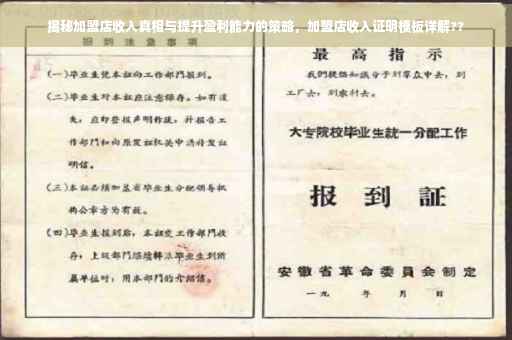 揭秘加盟店收入真相与提升盈利能力的策略，加盟店收入证明模板详解??
(一)毕业生凭本证向工作部门报到。
(二)毕业生对本证应注意保存。如有遗
失，应即登报声明作废，并报告工
作部门和向原发证机关申请补发证
明信。
(三)本证必须加盖省毕业生分配领导机
构公章方为有效。
(四)毕业生报到后，本证交工作部门收
存；上级部门
毕业生到所
属单位时，用本部门的介绍信。
最高指示
我们提倡知识分子到群众中去，到
工厂去，到农村去。
大专院校毕业生統一分配工作
报到証
安徽省革命委員会制定
一九 年 月 日